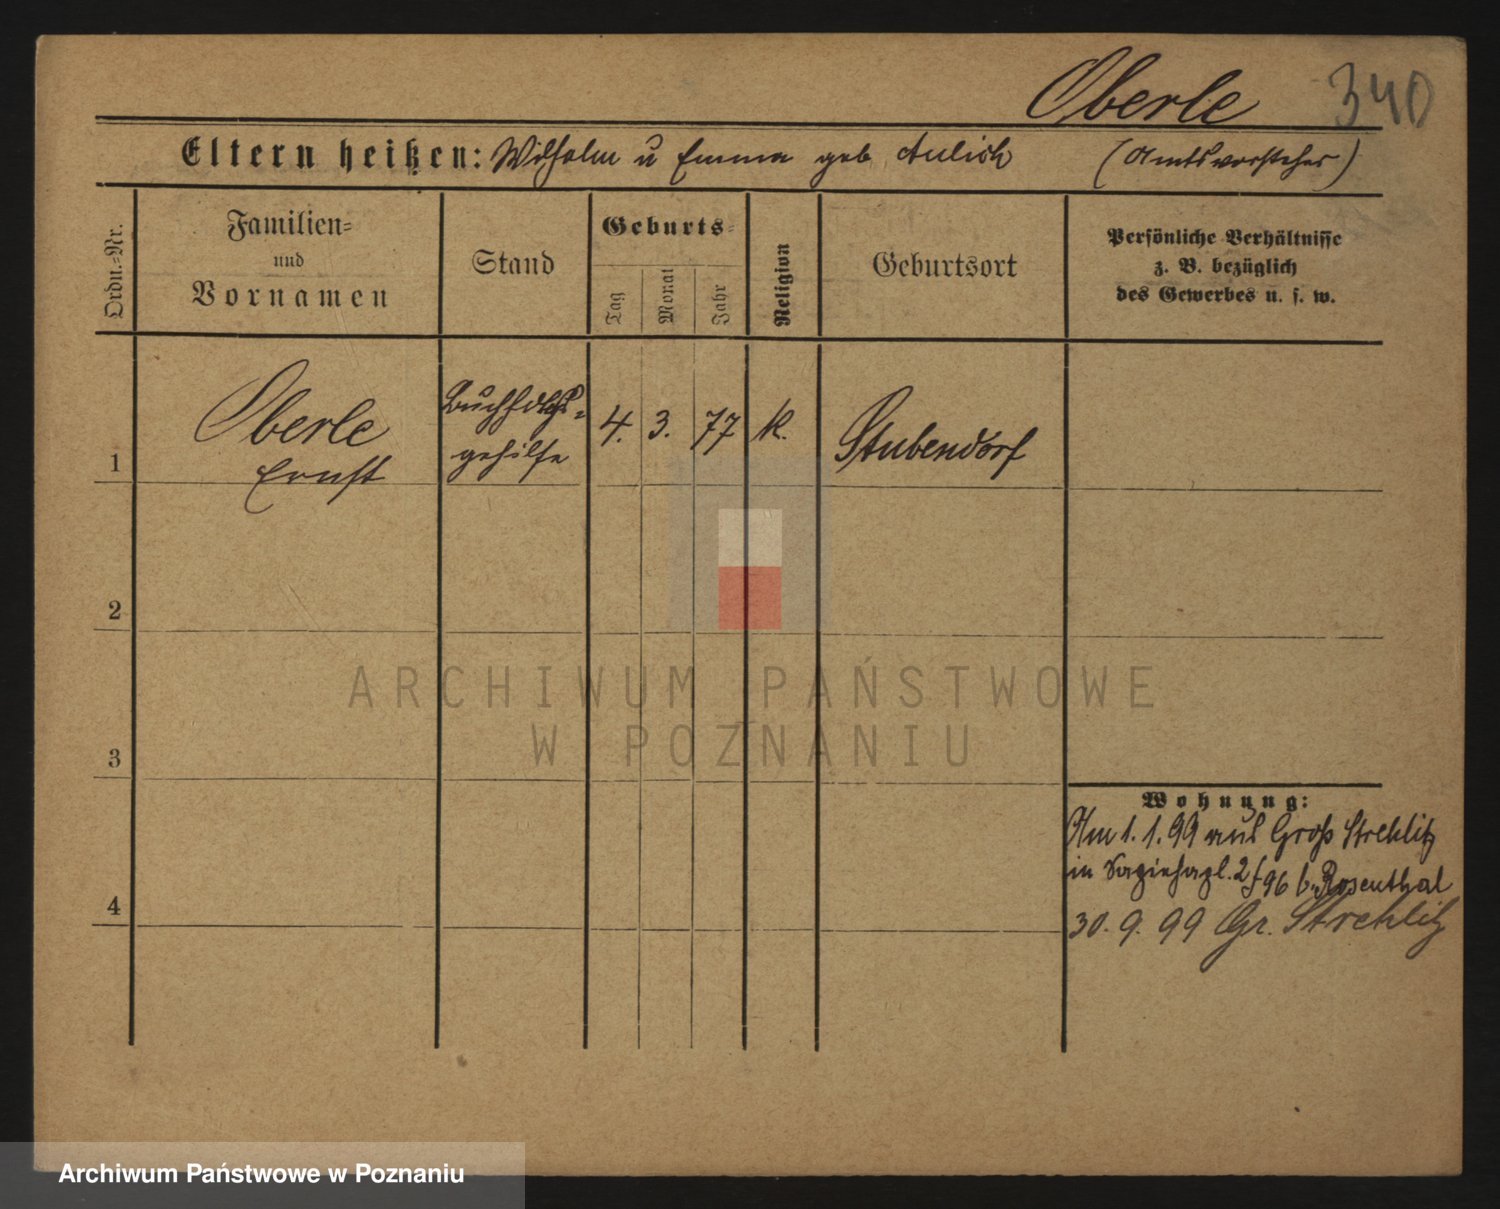 Oberle 340
Eltern heißen: Wilhelm u Emma geb Aulich (Amtsvorsteher)
Ordn.-Nr.
Familien-
und
Vornamen
Stand
Geburts-
Tag
Monat
Jahr
Religion
Geburtsort
Persönliche Verhältnisse
z. B. bezüglich
des Gewerbes u. s. w.
1
Oberle
Ernst
Buchhdlgs-
gehilfe
4. 3. 77 k. Stubendorf
2
ARCHIWUM PAŃSTWOWE
W POZNANIU
3
4
Wohnung:
Am 1.1.99 aus Groß Strehlitz
in 2/96 b. Rosenthal
30. 9. 99 Gr. Strehlitz
Archiwum Państwowe w Poznaniu